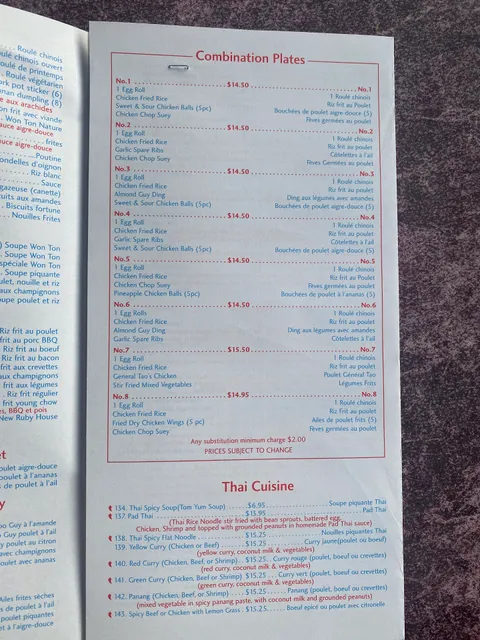 Roulé chinois
oulé chinois ouvert
oulé de printemps
Roulé végétarien
ork pot sticker (6)
nan dumpling (8)
e aux arachides
on frit avec viande
Won Ton Nature
auce aigre-douce
frites
uce aigre-douce
Poutine
ondelles d'oignon
Riz blanc
Sauce
gazeuse (canette)
cuits aux amandes
Biscuits fortune
Nouilles Frites
) Soupe Won Ton
Soupe Won Ton
spéciale Won Ton
Soupe piquante
ulet, nouille et riz
aux champignons
oupe poulet et riz
Riz frit au poulet
frit au porc BBQ
Riz frit au boeuf
Riz frit au bacon
frit aux crevettes
aux champignons
frit aux légumes
Riz frit régulier
frit young chow
s, BBQ et pois
New Ruby House
et
oulet aigre-douce
oulet à l'ananas
de poulet à l'ail
y
o Guy à l'amande
o Guy poulet à l'ail
y poulet au citron
avec champignons
oulet avec ananas
Ailes frites sèches
s de poulet à l'ail
poulet piquantes
à l'aigre-douce
Combination Plates
No.1 $14.50 No.1
1 Egg Roll 1 Roulé chinois
Chicken Fried Rice Riz frit au Poulet
Sweet & Sour Chicken Balls (5pc) Bouchées de poulet aigre-douce (5)
Chicken Chop Suey Fèves germées au poulet
No.2 $14.50 No.2
1 Egg Roll 1 Roulé chinois
Chicken Fried Rice Riz frit au poulet
Garlic Spare Ribs Côtelettes à l'ail
Chicken Chop Suey Fèves Germées au poulet
No.3 $14.50 No.3
1 Egg Roll 1 Roulé chinois
Chicken Fried Rice Riz frit au poulet
Almond Guy Ding Ding aux légumes avec amandes
Sweet & Sour Chicken Balls (5pc) Bouchées de poulet aigre-douce (5)
No.4 $14.50 No.4
1 Egg Roll 1 Roulé chinois
Chicken Fried Rice Riz frit au poulet
Garlic Spare Ribs Côtelettes à l'ail
Sweet & Sour Chicken Balls (5pc) Bouchées de poulet aigre-douce (5)
No.5 $14.50 No.5
1 Egg Roll 1 Roulé chinois
Chicken Fried Rice Riz frit au poulet
Chicken Chop Suey Fèves germées au poulet
Pineapple Chicken Balls (5pc) Bouchées de poulet à l'ananas (5)
No.6 $14.50 No.6
1 Egg Rolls 1 Roulé chinois
Chicken Fried Rice Riz frit au poulet
Almond Guy Ding Ding aux légumes avec amandes
Garlic Spare Ribs Côtelettes à l'ail
No.7 $15.50 No.7
1 Egg Roll 1 Roulé chinois
Chicken Fried Rice Riz frit au poulet
General Tao's Chicken Poulet Général Tao
Stir Fried Mixed Vegetables Légumes Frits
No.8 $14.95 No.8
1 Egg Roll 1 Roulé chinois
Chicken Fried Rice Riz Frit au poulet
Fried Dry Chicken Wings (5 pc) Ailes de poulet frits (5)
Chicken Chop Suey Fèves germées au poulet
Any substitution minimum charge $2.00
PRICES SUBJECT TO CHANGE
Thai Cuisine
134. Thai Spicy Soup(Tom Yum Soup) $6.95 Soupe piquante Thai
137. Pad Thai $13.95 Pad Thai
(Thai Rice Noodle stir fried with bean sprouts, battered egg,
Chicken, Shrimp and topped with grounded peanuts in homemade Pad Thai sauce)
138. Thai Spicy Flat Noodle $15.25 Nouilles piquantes Thai
139. Yellow Curry (Chicken or Beef) $15.25 Curry jaune(poulet ou boeuf)
(yellow curry, coconut milk & vegetables)
140. Red Curry (Chicken, Beef, or Shrimp) $15.25 Curry rouge (poulet, boeuf ou crevettes)
(red curry, coconut milk & vegetables)
141. Green Curry (Chicken, Beef or Shrimp) $15.25 Curry vert (poulet, boeuf ou crevettes)
(green curry, coconut milk & vegetables)
142. Panang (Chicken, Beef, or Shrimp) $15.25 Panang (poulet, boeuf ou crevette)
(mixed vegetable in spicy panang paste, with coconut milk and grounded peanuts)
143. Spicy Beef or Chicken with Lemon Grass $15.25 Boeuf épicé ou poulet avec citronelle